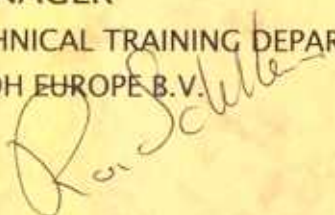 NAGER
HNICAL TRAINING DEPAR
OH EUROPE B.V.